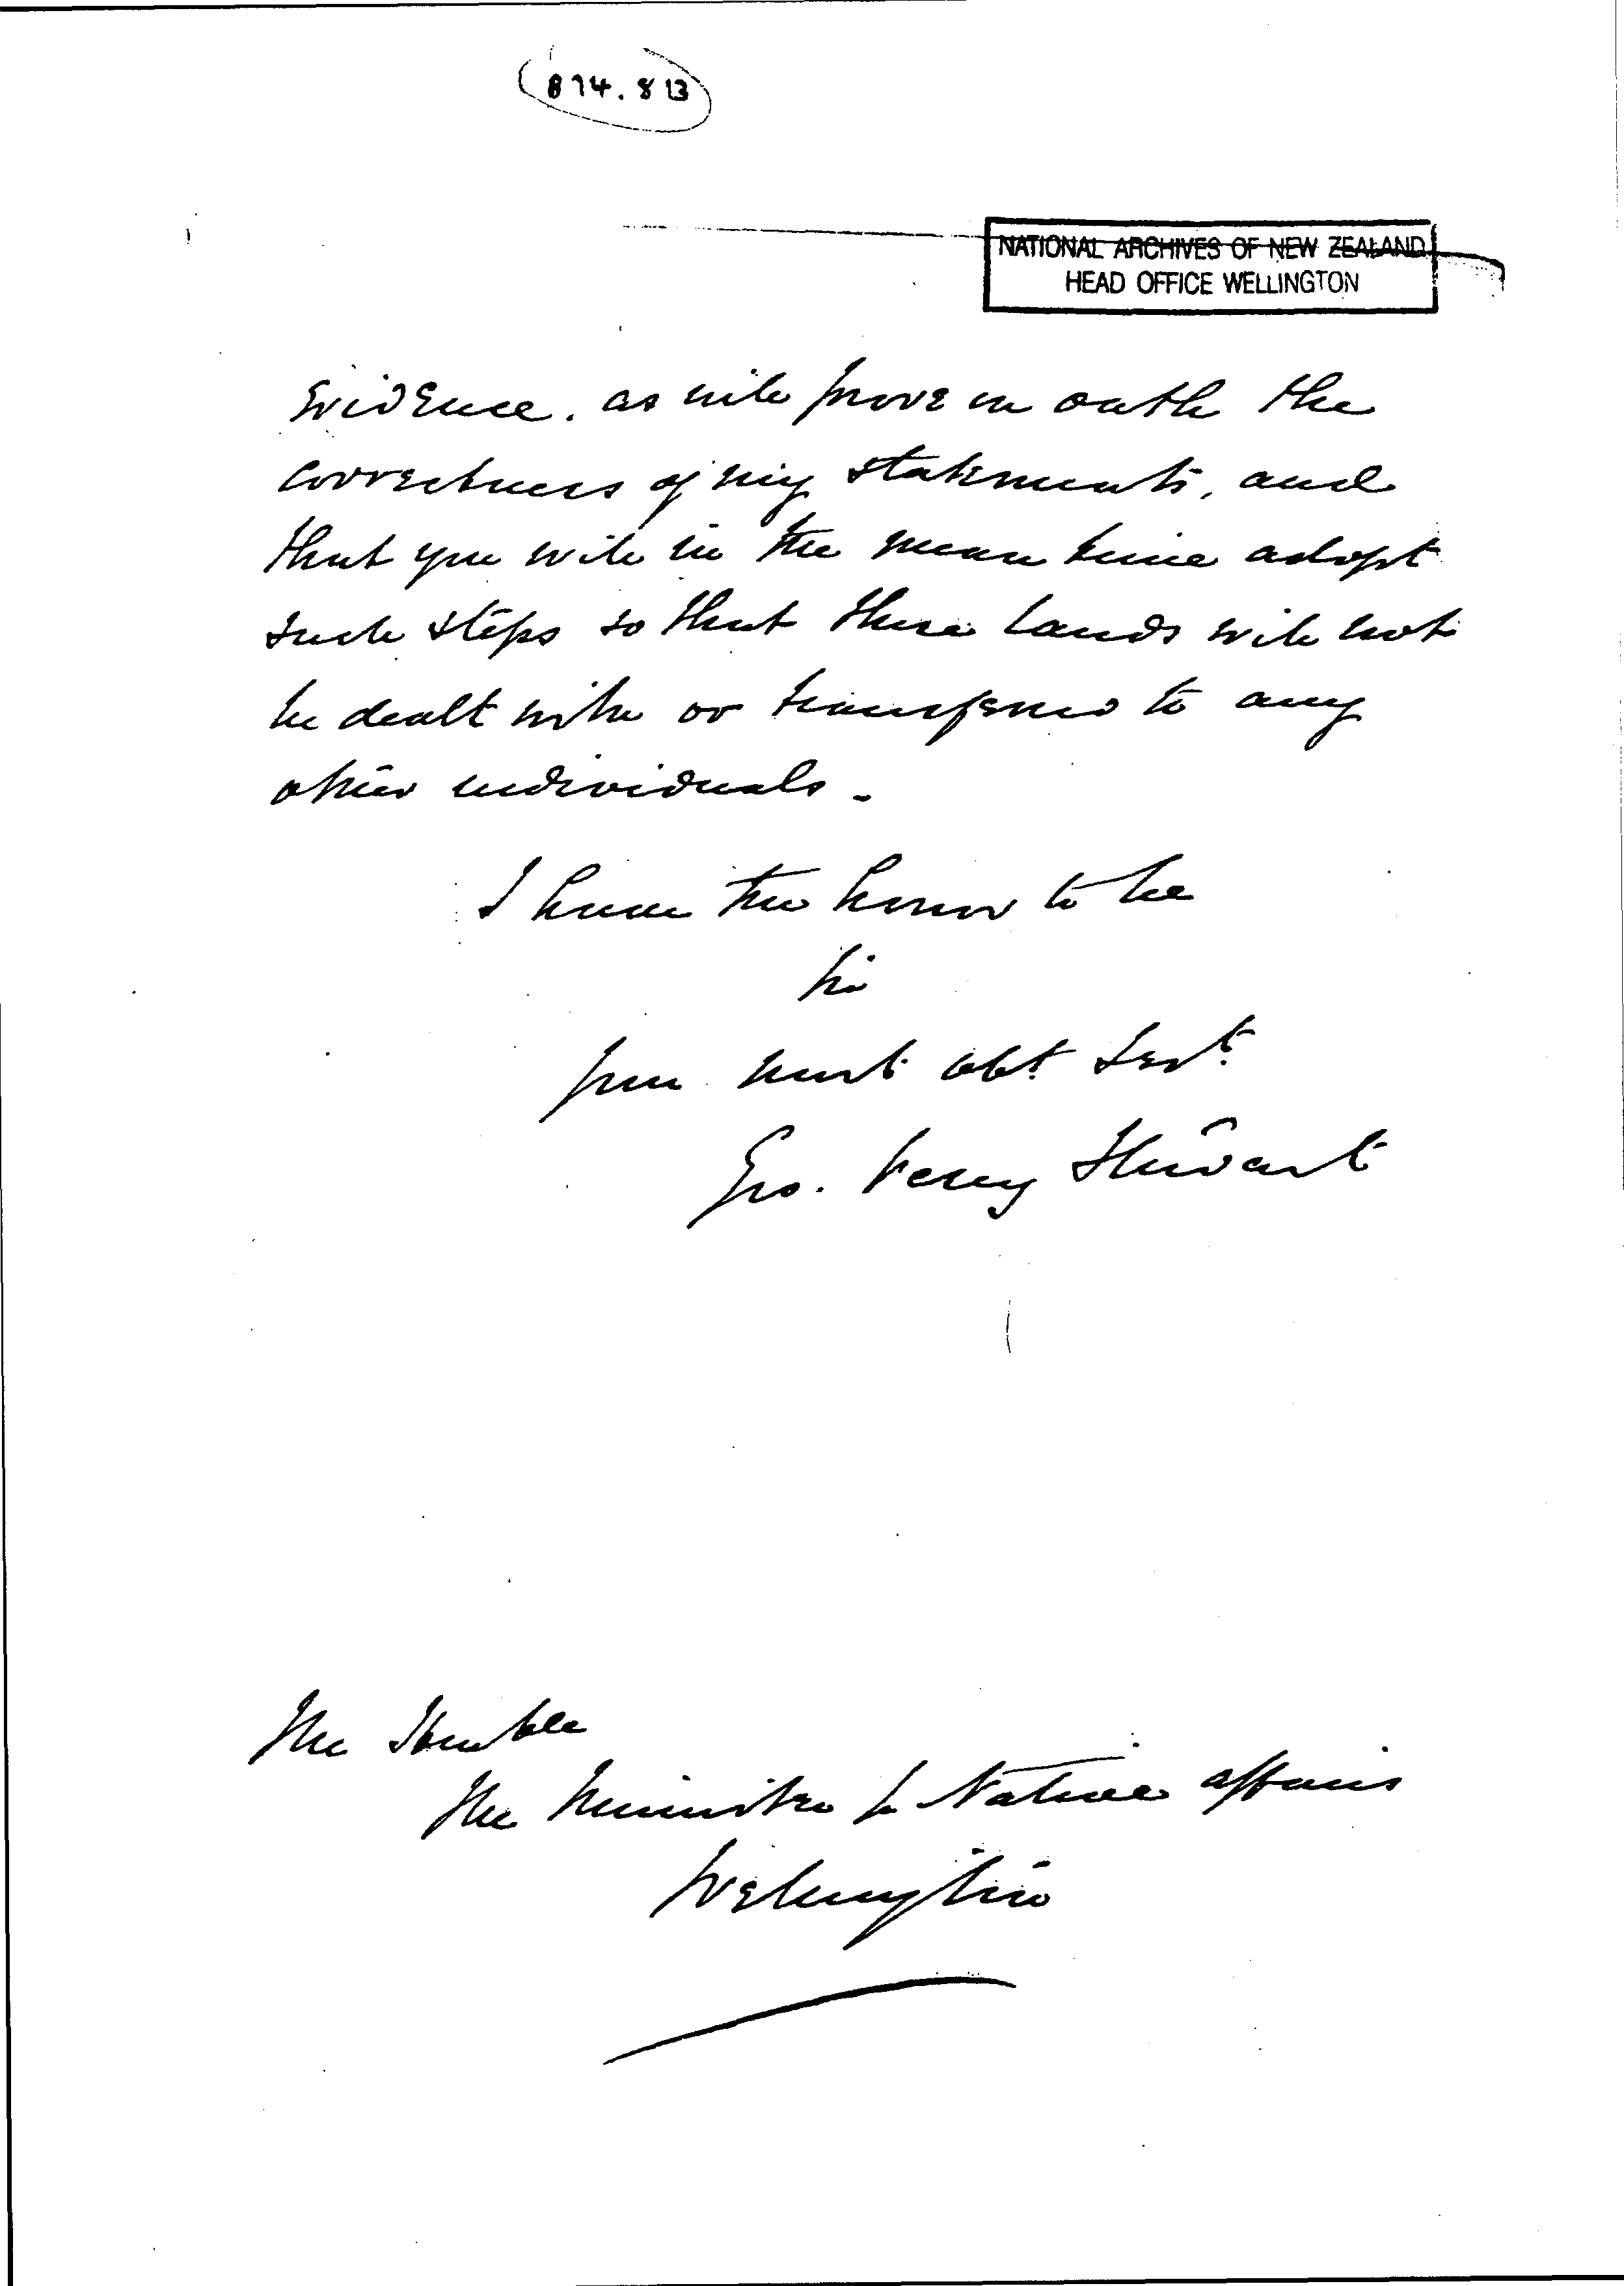 874.813
NATIONAL ARCHIVES OF NEW ZEALAND
HEAD OFFICE WELLINGTON
Evidence. as will prove on oath the
correctness of my statements, and
that you will in the mean time adopt
such steps so that these lands will not
be dealt with or transferred to any
other individuals.
I have the honor to be
Sir
your most obt Servt
Stewart
The Honble
The Minister for Native affairs
Wellington